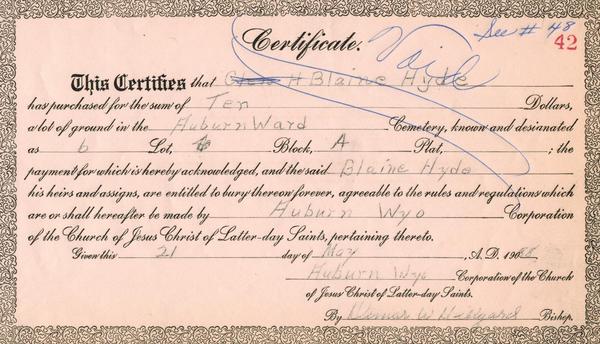 See # 48
42
Certificate.
Void
This Certifies that H Blaine Hyde
has purchased for the sum of Ten Dollars,
a lot of ground in the Auburn Ward Cemetery, known and designated
as 6 Lot, Block, A Plat, ; the
payment for which is hereby acknowledged, and the said Blaine Hyde
his heirs and assigns, are entitled to bury thereon forever, agreeable to the rules and regulations which
are or shall hereafter be made by Auburn Wyo Corporation
of the Church of Jesus Christ of Latter-day Saints, pertaining thereto.
Given this 21 day of May , A.D. 19
Auburn Wyo Corporation of the Church
of Jesus Christ of Latter-day Saints.
By W Bishop.